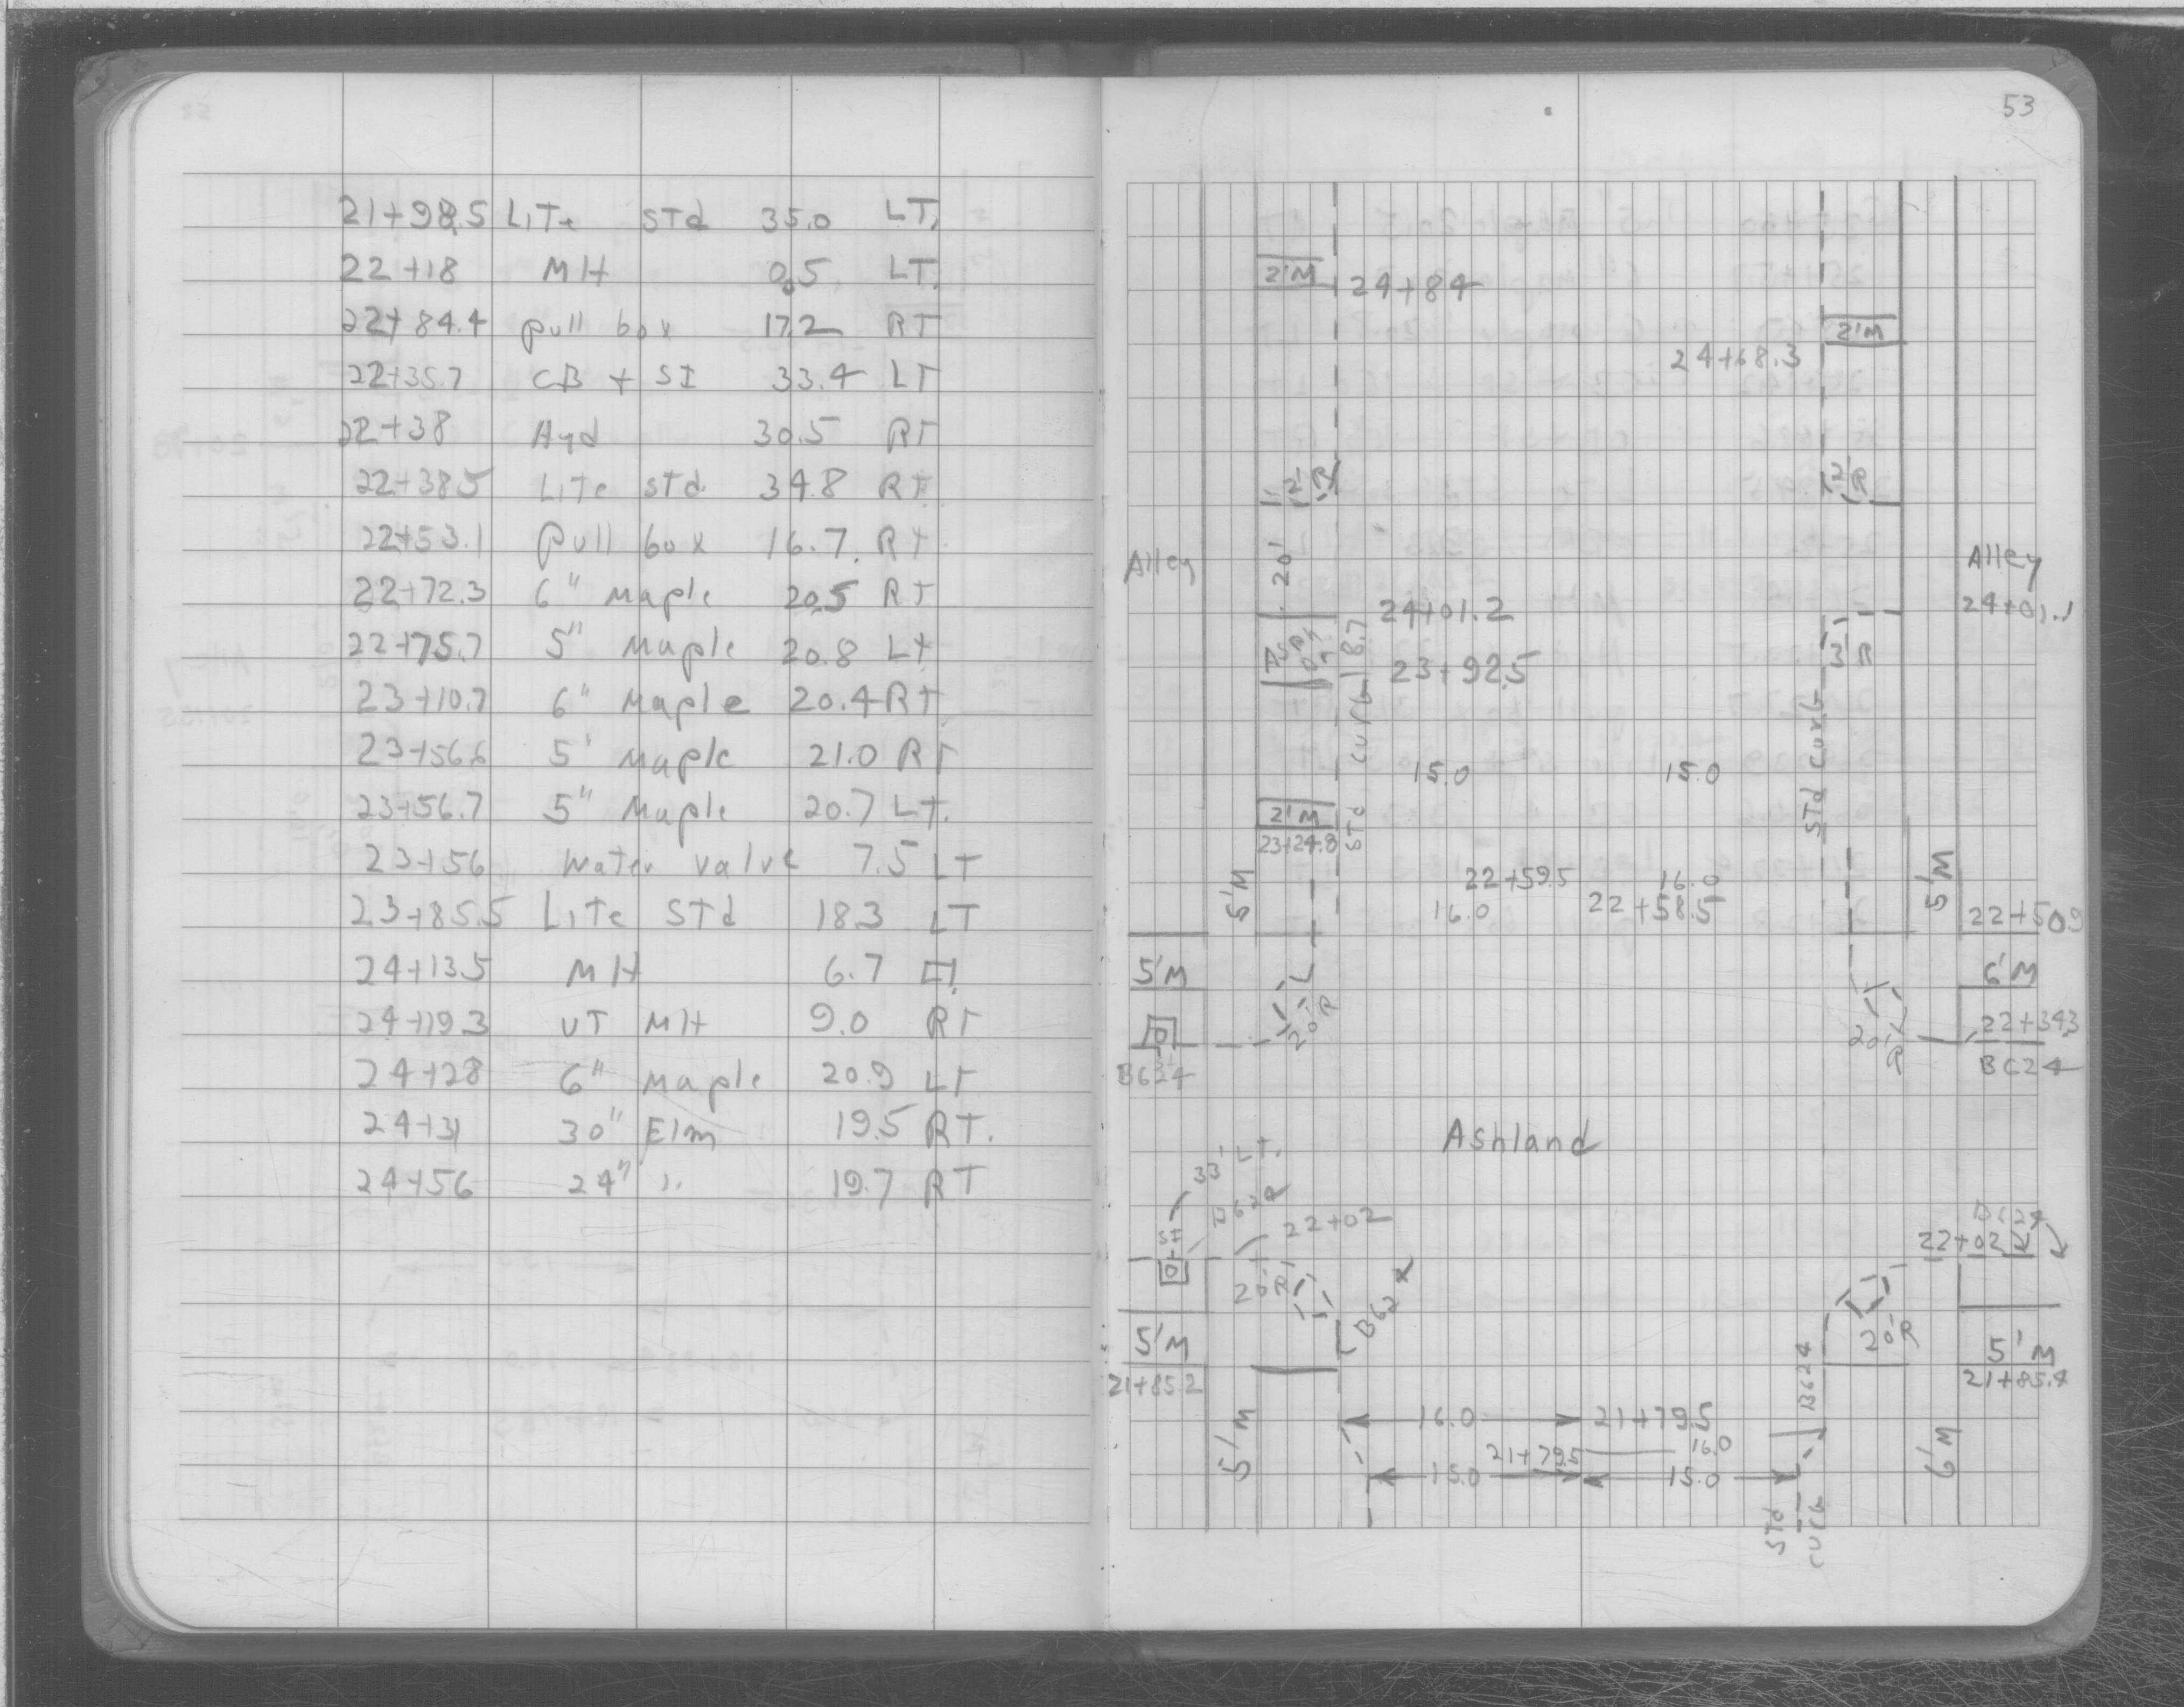 21+98.5 LiTe STd 35.0 LT.
22+18 MH 0.5 LT.
22+84.4 pull box 17.2 RT
22+35.7 CB + SI 33.4 LT
22+38 Hyd 30.5 RT
22+38.5 LiTe STd. 34.8 RT
22+53.1 Pull box 16.7 RT
22+72.3 6" Maple 20.5 RT
22+75.7 5" Maple 20.8 LT
23+10.7 6" Maple 20.4 RT
23+56.6 5' Maple 21.0 RT
23+56.7 5" Maple 20.7 LT.
23+56 Water valve 7.5 LT
23+85.5 LiTe STd 18.3 LT
24+13.5 MH 6.7
24+19.3 UT MH 9.0 RT
24+28 6" Maple 20.9 LT
24+31 30" Elm 19.5 RT.
24+56 24" " 19.7 RT
53
2'M 24+84
2'M
24+68.3
2'R 2'R
20'
Alley Alley
24+01.2 24+01.1
8.7 3'R
23+92.5
STd curb STd curb
15.0 15.0
2'M
23+24.8
22+59.5 16.0
16.0 22+58.5
5'M 5'M
22+50.9
5'M 6'M
20'R 20'R
22+34.3
B624 BC24
Ashland
33' LT.
B62R
22+02 22+02
SI
20'R B62R
5'M 20'R 5'M
21+85.2 21+85.4
B624
5'M 16.0 21+79.5 6'M
21+79.5 16.0
15.0 15.0
STd curb